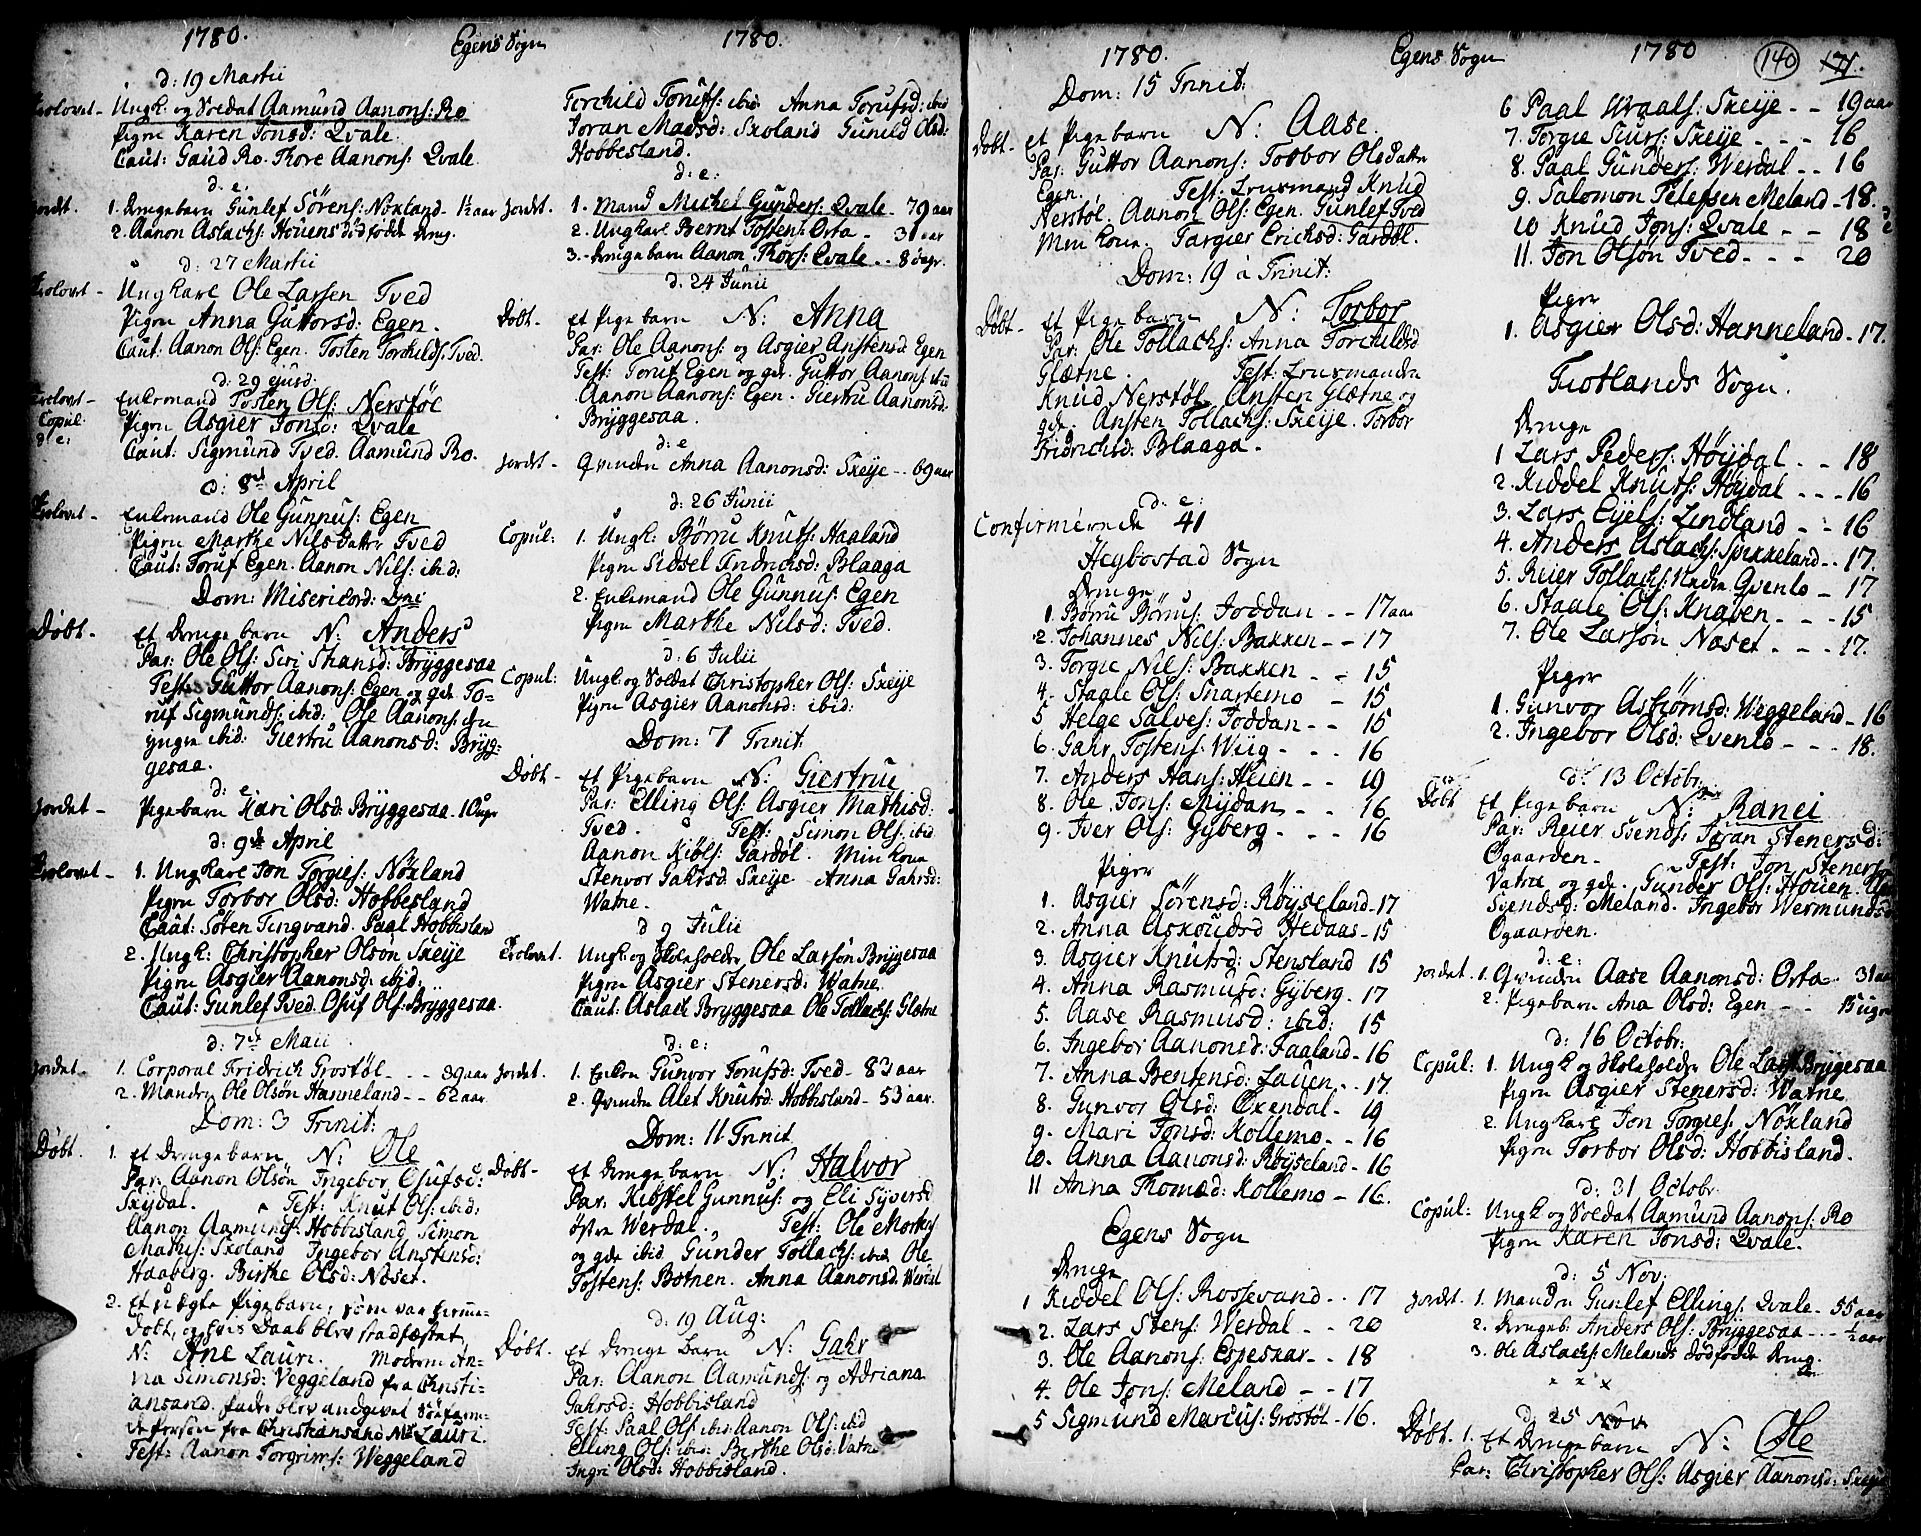 1780. Egens Sogn 1780.
d: 19 Martii
Trolovet - Ungk. og Soldat Aamund Aanons: Ro
Pigen Karen Jonsd: Qvale.
Caut: Gaud Ro. Thore Aanons: Qvale.
d: e:
Jordet. 1. Drengebarn Gunlef Sörens: Nöxland - 1½ aar
2. Aanon Aslachs: Houens dödfödt dreng.
d: 27 Martii
Trolovet - Ungkarl Ole Larsen Tved
Pigen Anna Guttorsd: Egen.
Caut: Aanon Ols: Egen. Tosten Torchilds: Tved.
d: 29 ejusd:
Trolovet - Enkemand Tosten Ols: Nerstöl
Copul: Pigen Asgier Jonsd: Qvale
d: e: Caut: Sigmund Tved. Aamund Ro.
d: 8de April
Trolovet - Enkemand Ole Gunnus: Egen
Pigen Marthe Nilsdatter Tved
Caut: Toruf Egen. Aanon Nils: ibid:
Dom: Misericord: Dni
Döbt. Et Drengebarn N: Anders
Par: Ole Ols: Siri Stensd: Bryggesaa
Test: Guttor Aanons: Egen og gde To-
ruf Sigmunds: ibid: Ole Aanons: den
yngre ibid: Giertru Aanonsd: Brygg-
gesaa.
d: e:
Jordet - Pigebarn Kari Olsd: Bryggesaa. 10 uger
d: 9de April
Trolovet - 1. Ungkarl Jon Torgies: Nöxland
Pigen Torbor Olsd: Hobbesland
Caut: Sören Tingvand. Paal Hobbisland
2. Ungk: Christopher Olsön Skeije
Pigen Asgier Aanonsd: ibid.
Caut: Gunlef Tved. Osuf Ols: Bryggesaa.
d: 7de Maii
Jordet - 1. Corporal Fridrich Grostöl - - - 39 aar
2. Manden Ole Olsön Hanneland - - 62 aar
Dom: 3 Trinit:
Döbt. 1. et Drengebarn N: Ole
Par: Aanon Olsön Ingebor Osufsd:
Skejdal. Test: Knut Ols: ibid:
Aanon Aamunds: Hobbisland Simon
Mathis: Skoland Ingebor Anstensd:
Haaberg. Birthe Olsd: Næset.
2. Et uægte Pigebarn, som var hiemme-
döbt, og hvis Daab blev stadfæstet
N: Ane Lauri. Moderen An-
na Simonsd: Veggeland fra Christi-
ansand. fader blev angivet
de person fra Christiansand Mr Lauri.
Test: Aanon Torgrims: Veggeland
Torchild Torufs: ibid: Anna Torufsd: ibid
Joran Madsd: Skoland Gunild Olsd:
Hobbesland.
d: e:
Jordet. 1. Mand Michel Gunders: Qvale - 79 aar
2. Ungkarl Bernt Tostens: Orta - 31 aar
3. - Drengebarn Aanon Thors: Qvale - - 8 dage.
d: 24 Junii
Döbt - et Pigebarn N: Anna
Par: Ole Aanons: og Asgier Anstensd: Egen
Test: Toruf Egen og gde. Guttor Aanons: ibid
Aanon Aanons: Egen. Giertru Aanonsd:
Bryggesaa.
d: e
Jordet - Qvinden Anna Aanonsd: Skeije - - 69 aar
d: 26 Junii
Copul: 1. Ungk: Börru Knuts: Haaland
Pigen Sidsel Fridrichsd: Blaaga
2. Enkemand Ole Gunnus: Egen
Pigen Marthe Nilsd: Tved.
d: 6 Julii
Copul: Ungk: og Soldat Christopher Ols: Skeije
Pigen Asgier Aanonsd: ibid:
Dom: 7 Trinit
Döbt - et Pigebarn N: Giertrue
Par: Elling Ols: Asgier Mathisd:
Tved. Test: Simon Ols: ibid
Aanon Kiöls: Gardöl. Min kone
Stenvor Gahrsd: Skeije Anna Gahrsd:
Watne.
d 9 Julii
Trolovet. Ungk: og Ole Larsön Bryggesaa
Pigen Asgier Stenersd: Watne.
Caut: Aslack Bryggesaa Ole Tollachs: Glætne
d: e:
Jordet. 1. Enken Gunvor Torufsd: Tved - 83 aar
2. Qvinden Alet Knutsd: Hobbisland - 53 aar.
Dom: 11 Trinit
Döbt - et Drengebarn N: Halvor
Par: Kiöstel Gunnus: og Eli Syversd
östre Werdal. Test: Ole
og gde ibid. Gunder Tollachs: ibid. Ole
Tostens: Botnen. Anna Aanonsd: Werdal
d: 19 Aug:
Döbt. et Drengebarn N: Gahr
Par: Aanon Aamunds: og Adriana
Gahrsd: Hobbisland
Test: Paal Ols: ibid: Aanon Ols: ibid
Elling Ols: ibid: Birthe Olsd: Vatne
Ingri Olsd: Hobbisland.
1780. Egens Sogn 1780 140 171.
Dom: 15 Trinit:
Döbt - et Pigebarn N: Aase.
Par: Guttor Aanons: Torbor Olsdatter
Egen. Test: Knud
Nerstöl. Aanon Ols: Egen. Gunlef Tved
Min kone. Targier Ericksd: Gardöl.
Dom: 19 à Trinit:
Döbt - et Pigebarn N: Torbor
Par: Ole Tollachs: Anna Torchildsd
Glætne. Test:
Knud Nerstöl. Ansten Glætne og
gde. Ansten Tollachs: Skeije. Torbor
Fridrichsd: Blaaga.
d: e:
Confirmerede 41
Hegbostad Sogn
Drenge
1. Börru Börrus: Joddan - - 17 aar
2. Johannes Nils: Bakken - - 17
3. Torgie Nils: Bakken - - 15
4. Staale Ols: Snartemo - 15
5 Helge Salves: Joddan - - 15
6. Gahr Tostens: Wiig - - - 16
7. Anders Hans: Heien - - 19
8. Ole Jons: Mydan - - 16
9. Iver Ols: Gyberg - - - 16
Piger
1. Asgier Sörensd: Röyseland - 17
2. Anna Askoudsd Hedaas - 15
3. Asgier Knutsd: Stensland 15
4. Anna Rasmusd: Gyberg - 17
5. Aase Rasmusd: ibid: 15
6. Ingebor Aanonsd: Faaland - 16
7. Anna Bentensd: Lauen - - 17.
8. Gunvor Olsd: Oxendal - 19
9. Mari Jonsd: Kollemo - - 16
10. Anna Aanonsd: Röyseland - 16
11 Anna Thomæd: Kollemo - 16.
Egens Sogn
Drenge
1 Kiddel Ols: Rossevand - - 17
2. Lars Stens: Werdal - - 20
3. Ole Aanons: Espeskar - - 18
4. Ole Jons: Meland - - 17
5 Sigmund Marcus: Grostöl - 16.
6 Paal Wraals: Skeije - - 19 aar
7. Torgie Siurs: Skeije - - - 16
8. Paal Gunders: Werdal - - 16
9. Salomon Tellefsen Meland - 18.
10 Knud Jons: Qvale - - 18
11. Jon Olsön Tved - - - 20
Piger
1. Asgier Olsd: Hanneland - 17.
Fiotlands Sogn.
Drenge
1 Lars Peders: Höydal - - 18
2. Kiddel Knuts: Höydal - - - 16
3. Lars Eyels: Lindland - - 16
4. Anders Aslachs: Spikkeland - - 17.
5. Reier Tollachs: Nedre Qvenlo - 17
6. Staale Ols: Knaben - - - 15
7. Ole Larsön Næset - - - 17.
Piger
1. Gunvor Asbiörnsd: Weggeland - 16
2. Ingebor Olsd: Qvenlo - - - 18.
d: 13 Octobr.
Döbt et Pigebarn N: Ranei
Par: Reier Svends: Joran Stenersd:
Ögaarden - Test: Jon Steners:
Vatne og gde. Gunder Ols: Houen.
Svendsd: Meland. Ingebor Wermundsd
Ögaarden.
d: e:
Jordet. 1. Qvinden Aase Aanonsd: Orta - 31 aar
2. Pigebarn Ana Olsd: Egen - - 15 uger
d: 16 Octobr:
Copul: 1. Ungk og Ole Lars: Bryggesaa
Pigen Asgier Stenersd: Watne
2. Ungkarl Jon Torgies: Nöxland
Pigen Torbor Olsd: Hobbisland.
d: 31 Octobr.
Copul: Ungk og Soldat Aamund Aanons: Ro
Pigen Karen Jonsd: Qvale.
d: 5 Nov:
Jordet. 1. Manden Gunlef Ellings: Qvale - 55 aar
2. Drengeb: Anders Ols: Bryggesaa - - - ½ aar
3. Ole Aslachs: Melands dödfödt dreng.
x x x
d 25 Nov:
Döbt. 1. Et Drengebarn N: Ole
Par: Christopher Ols: Asgier Aanonsd: Skeije